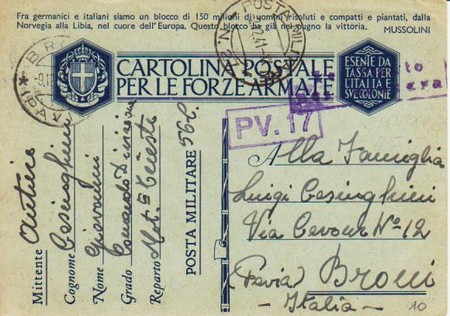 Fra germanici e italiani siamo un blocco di 150 milioni di uomini risoluti e compatti e piantati, dalla
Norvegia alla Libia, nel cuore dell'Europa. Questo blocco ha già nel pugno la vittoria. MUSSOLINI
POSTA MILI
CARTOLINA POSTALE
PER LE FORZE ARMATE
ESENTE DA
TASSA PER
L'ITALIA E
SUE COLONIE
PV. 17
Mittente
Cognome
Nome
Grado Comando Divisione
Reparto Mot. Trieste
POSTA MILITARE 56C.
Alla Famiglia
Luigi
Via Cavour Nº 12
(Pavia) Broni
- Italia -
10